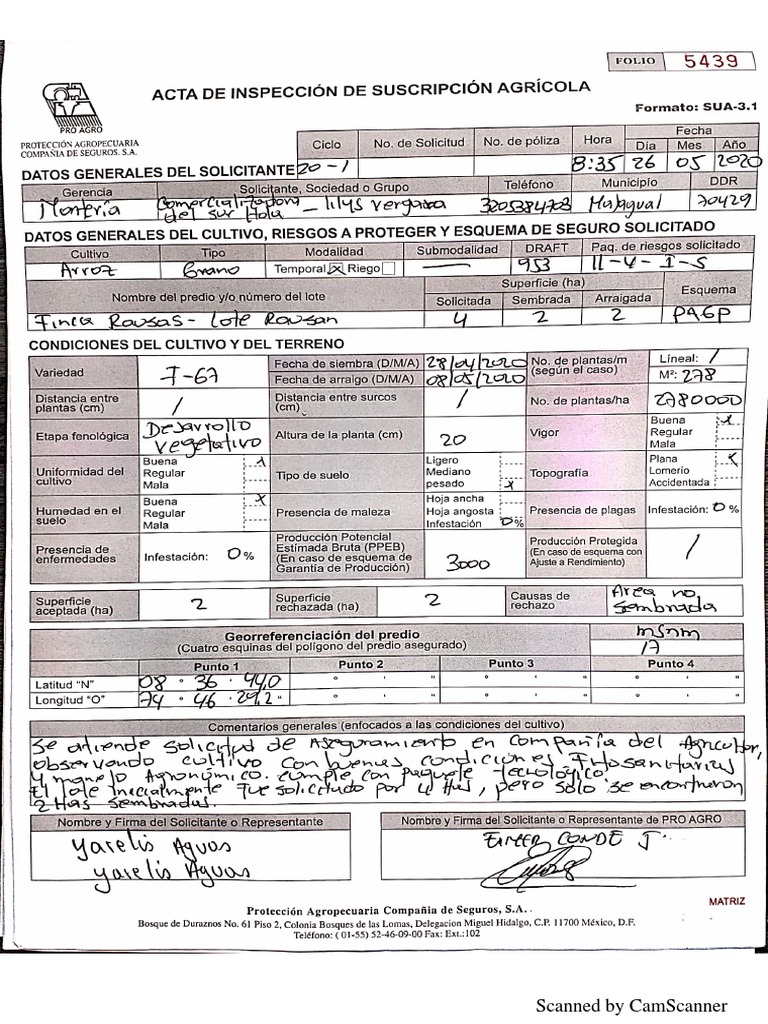 FOLIO 5439
ACTA DE INSPECCIÓN DE SUSCRIPCIÓN AGRÍCOLA
Formato: SUA-3.1
PRO AGRO
PROTECCIÓN AGROPECUARIA
COMPAÑIA DE SEGUROS. S.A.
Ciclo No. de Solicitud No. de póliza Hora Fecha
Día Mes Año
DATOS GENERALES DEL SOLICITANTE 20-1 8:35 26 05 2020
Gerencia Solicitante, Sociedad o Grupo Teléfono Municipio DDR
Montería Comercializadora del sur Hola - lilys vergara 3205384703 Majagual 70429
DATOS GENERALES DEL CULTIVO, RIESGOS A PROTEGER Y ESQUEMA DE SEGURO SOLICITADO
Cultivo Tipo Modalidad Submodalidad DRAFT Paq. de riesgos solicitado
Arroz Grano Temporal X Riego — 953 11-4-1-5
Nombre del predio y/o número del lote Superficie (ha) Esquema
Solicitada Sembrada Arraigada
Finca Rausas - Lote Rausan 4 2 2 PAGP
CONDICIONES DEL CULTIVO Y DEL TERRENO
Variedad F-67 Fecha de siembra (D/M/A) 28/04/2020 No. de plantas/m (según el caso) Líneal: /
Fecha de arraigo (D/M/A) 08/05/2020 M²: 278
Distancia entre plantas (cm) / Distancia entre surcos (cm) / No. de plantas/ha 2780000
Etapa fenológica Desarrollo vegetativo Altura de la planta (cm) 20 Vigor Buena x
Regular
Mala
Uniformidad del cultivo Buena x Tipo de suelo Ligero Topografía Plana x
Regular Mediano Lomerío
Mala pesado x Accidentada
Humedad en el suelo Buena x Presencia de maleza Hoja ancha Presencia de plagas Infestación: 0 %
Regular Hoja angosta
Mala Infestación 0 %
Presencia de enfermedades Infestación: 0 % Producción Potencial Estimada Bruta (PPEB) (En caso de esquema de Garantía de Producción) 3000 Producción Protegida (En caso de esquema con Ajuste a Rendimiento) /
Superficie aceptada (ha) 2 Superficie rechazada (ha) 2 Causas de rechazo Area no sembrada
Georreferenciación del predio msnm
(Cuatro esquinas del polígono del predio asegurado) 17
Punto 1 Punto 2 Punto 3 Punto 4
Latitud "N" 08 ° 36 ' 44,0 ° ' " ° ' " ° ' "
Longitud "O" 74 ° 46 ' 29,2 " ° ' " ° ' " ° ' "
Comentarios generales (enfocados a las condiciones del cultivo)
Se atiende solicitud de Aseguramiento en compañia del Agricultor,
observando cultivo con buenas condiciones Fitosanitarias
y manejo Agronómico. cumple con paquete tecnológico.
El lote inicialmente fue solicitado por 4 Has, pero solo se encontraron
2 Has sembradas.
Nombre y Firma del Solicitante o Representante Nombre y Firma del Solicitante o Representante de PRO AGRO
Yarelis Aguas CONDE J.
Yarelis Aguas
MATRIZ
Protección Agropecuaria Compañia de Seguros, S.A.
Bosque de Duraznos No. 61 Piso 2, Colonia Bosques de las Lomas, Delegacion Miguel Hidalgo, C.P. 11700 México, D.F.
Teléfono: ( 01-55) 52-46-09-00 Fax: Ext.:102
Scanned by CamScanner